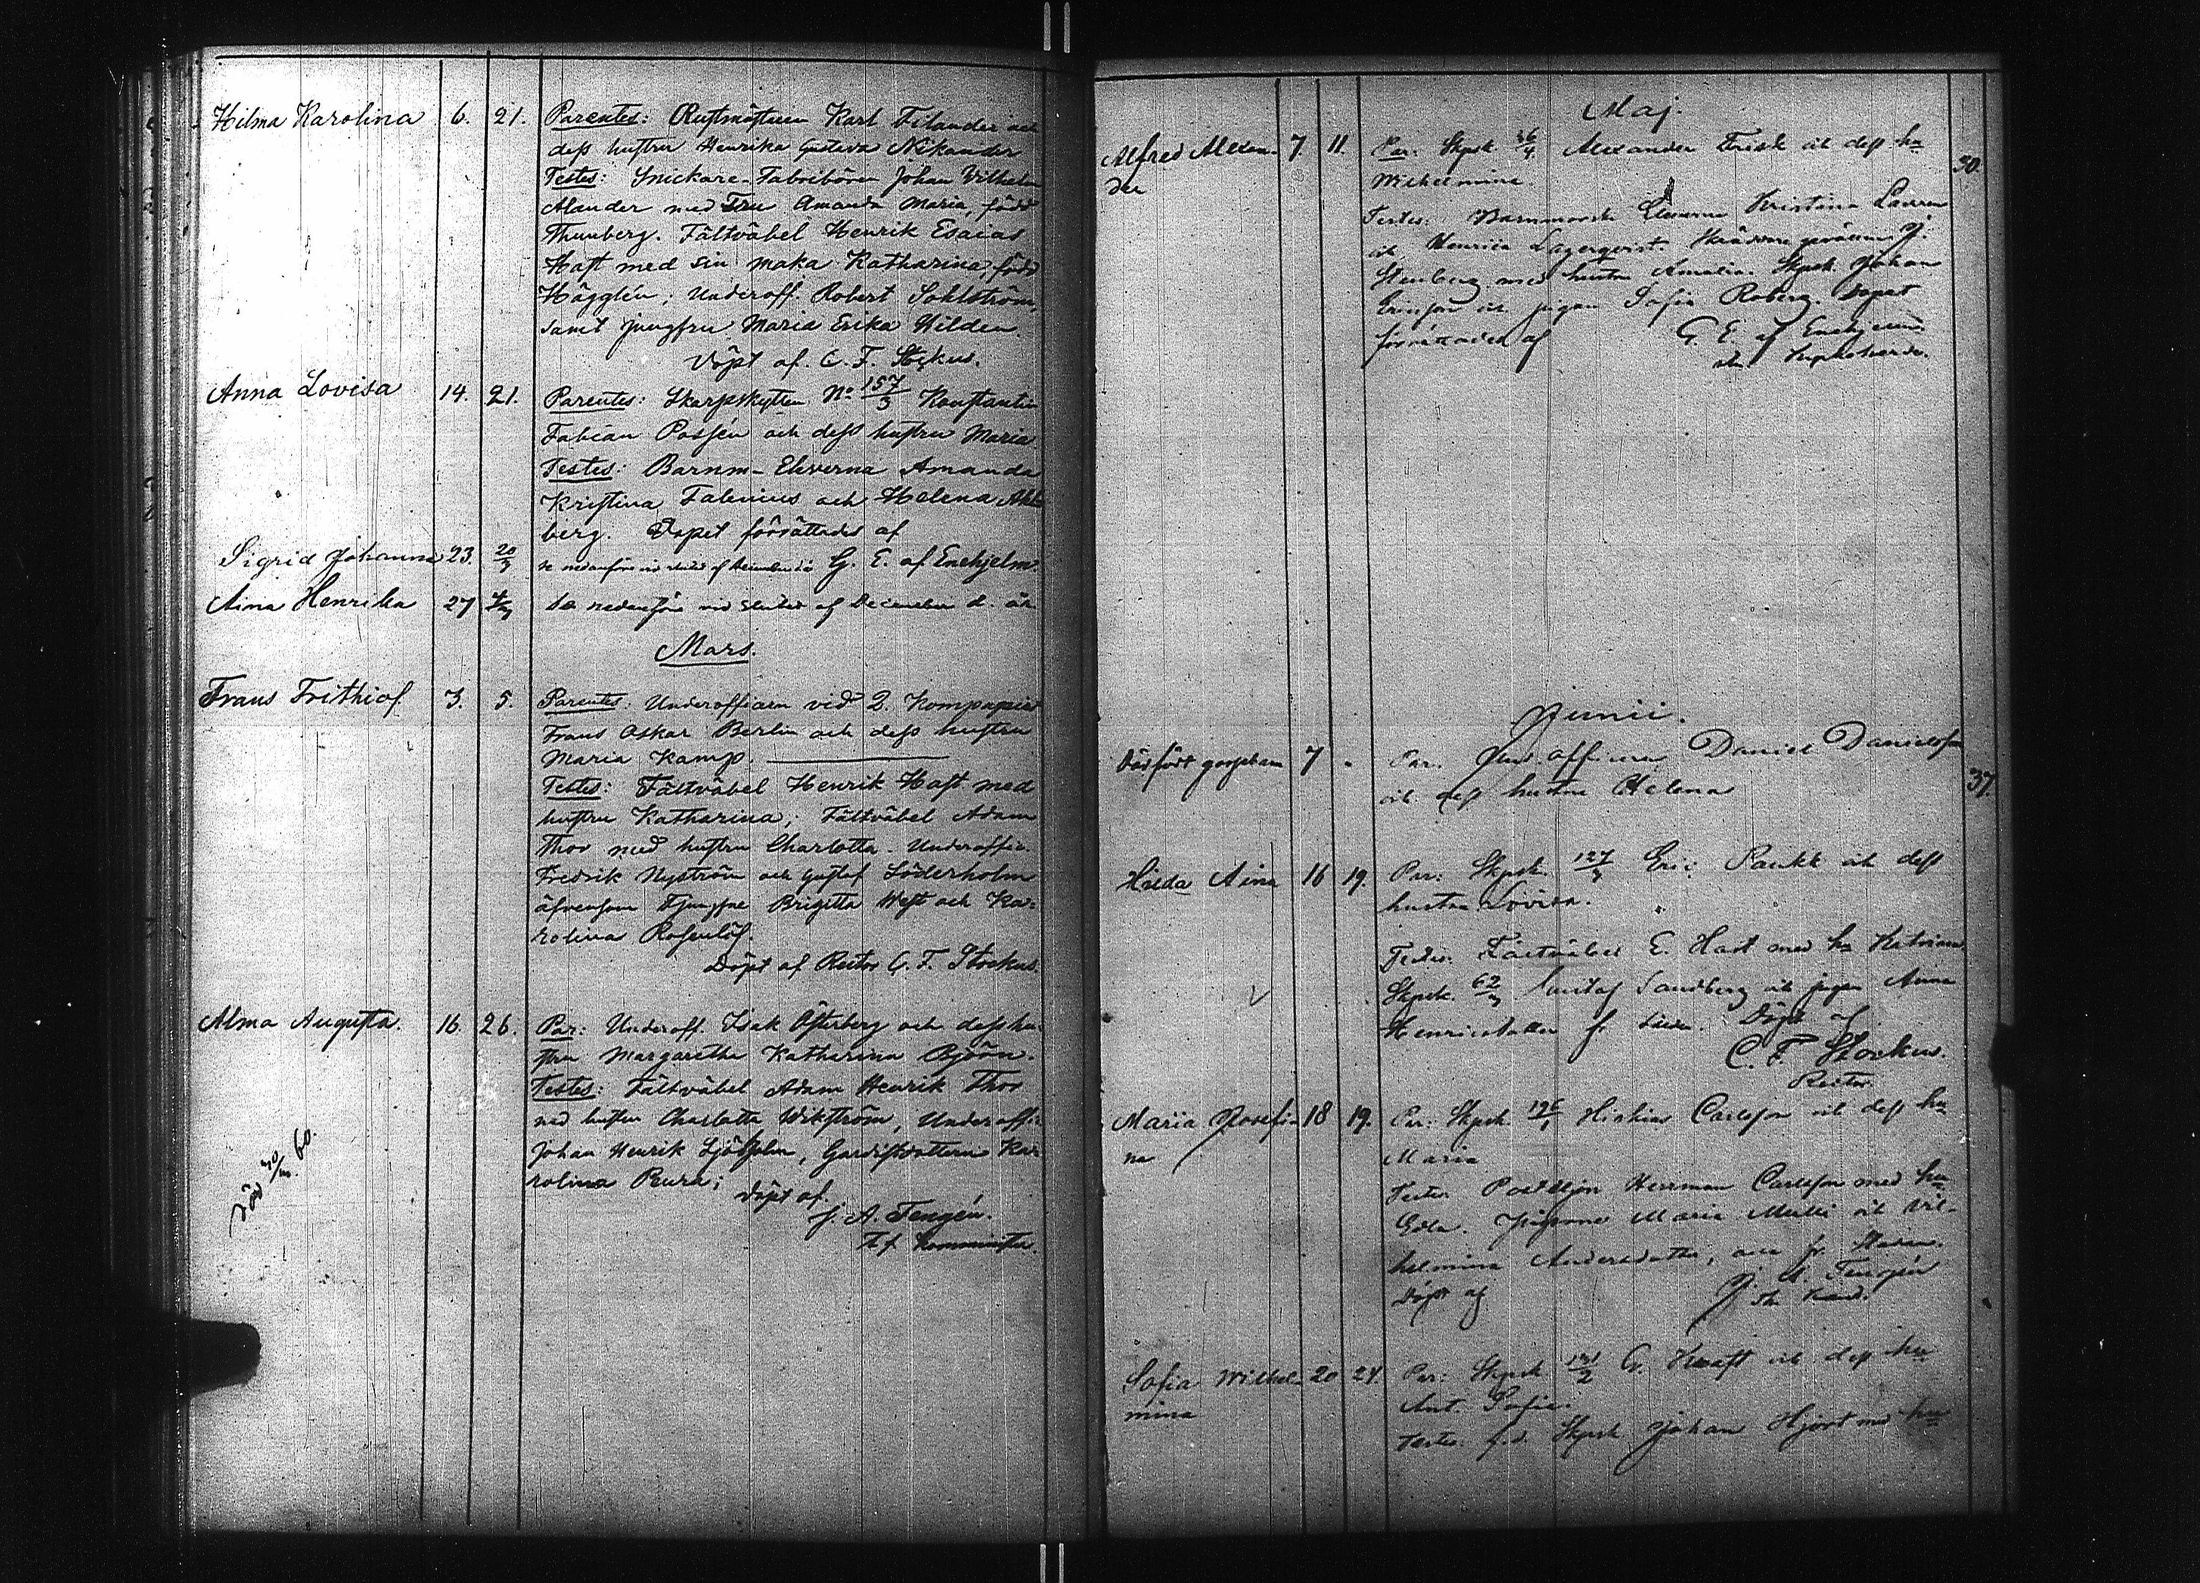 Hilma Karolina 6. 21. Parentes: Rustmästaren Karl Filander och
dess hustru Henrika Gustava Nikander
Testes: Snickare-Fabrikören Johan Vilhelm
Alander med Fru Amanda Maria, född
Thunberg. Fältväbel Henrik Esaias
Haft med sin maka Katharina, född
Hägglén; Underoff. Robert Sohlström,
samt jungfru Maria Erika Hilden.
Döpt af. C. F. Stockus.
Anna Lovisa 14. 21. Parentes: Skarpskytten No 157/3 Konstantin
Fabian Possén och dess hustru Maria
Testes: Barnm-Eleverna Amanda
Kristina Falenius och Helena
berg. Dopet förrättades af
G. E. af Enehjelm.
Sigrid Johanna 23. 20/3 se nedanföre vid slutet af December
Aina Henrika 27 se nedanföre vid slutet af December d. år.
Mars.
Frans Frithiof 3. 5. Parentes: Underofficern vid 2. Kompaniet
Frans Oskar Berlin och dess hustru
Maria Kamp.
Testes: Fältväbel Henrik Haft med
hustru Katharina; Fältväbel Adam
Thor med hustru Charlotta. Underoffic.
Fredrik Nyström och Gustaf Söderholm
äfvensom Brigitta West och Ka-
rolina Rosenlöf.
Döpt af Rector C. F. Stockus.
Alma Augusta. 16. 26. Par: Underoff. Isak Österberg och dess hu-
stru Margaretha Katharina Björn.
Testes: Fältväbel Adam Henrik Thor
med hustru Charlotta Wikström, Underoffic.
Johan Henrik Sjöholm, Gardistdottern Ka-
rolina Rura;
Döpt af.
J. A. Tengén.
Kommin
död 60.
Maj.
Alfred Alexan- 7. 11. Par: Skpsk 36/4 Alexander Frisk och dess hu
der Wilhelmina 30.
Testes: Barnmorsk Eleverna Kristina
och Henrica Lagerqvist. J.
Stenberg med hustru Amalia. Skpsk Johan
och pigan Sofia Roberg. Dopet
förrättades af G. E. af Enehjelm.
Junii.
Dödfödt gossebarn 7 - Par. Und. officern Daniel Danielsson
och dess hustru Helena 37
Hilda Aina 16 19. Par: Skpsk. 127/3 Eric Paukk och dess
hustru Lovisa.
Testes: Fältväbel E. Haft med hu Katrina
Skpsk. 62/3 Gustaf Sandberg och pigan Anna
Henriksdotter fr. Döpt af
C. F. Stockus.
Rector.
Maria Josefi- 18 19. Par: Skpsk Carlsson och dess hu
na Maria
Testes Herrman Carlsson med hu
Edla. Pigorna Maria Matti och Vil-
helmina Andersdotter,
Döpt af J. A. Tengén
Sofia Wilhel- 20 24 Par: Skpsk G. Kraft och dess hu
mina Ant. Sofia.
Testes: f.d. Skpsk Johan Hjort med hu